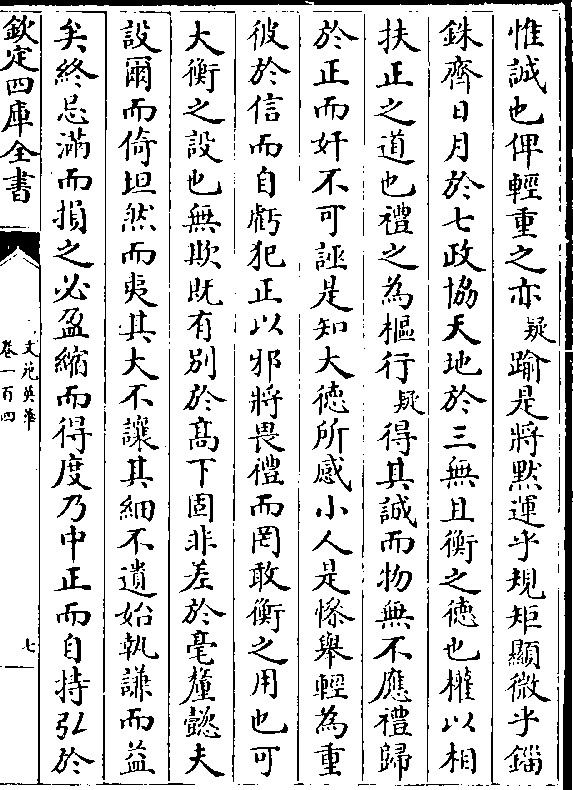 惟誠也俾輕重之亦疑踰是將黙運乎規矩顯微乎錙
銖齊日月於七政協天地於三無且衡之徳也權以相
扶正之道也禮之為樞行疑得其誠而物無不應禮歸
於正而奸不可誣是知大徳所感小人是慘舉輕為重
彼於信而自虧犯正以邪將畏禮而罔敢衡之用也可
大衡之設也無欺既有別於髙下固非差於毫釐懿夫
設爾而倚坦然而夷其大不讓其細不遺始執謙而益
矣終忌滿而損之必盈縮而得度乃中正而自持弘於
欽定四庫全書
文苑英華
卷一百四
七